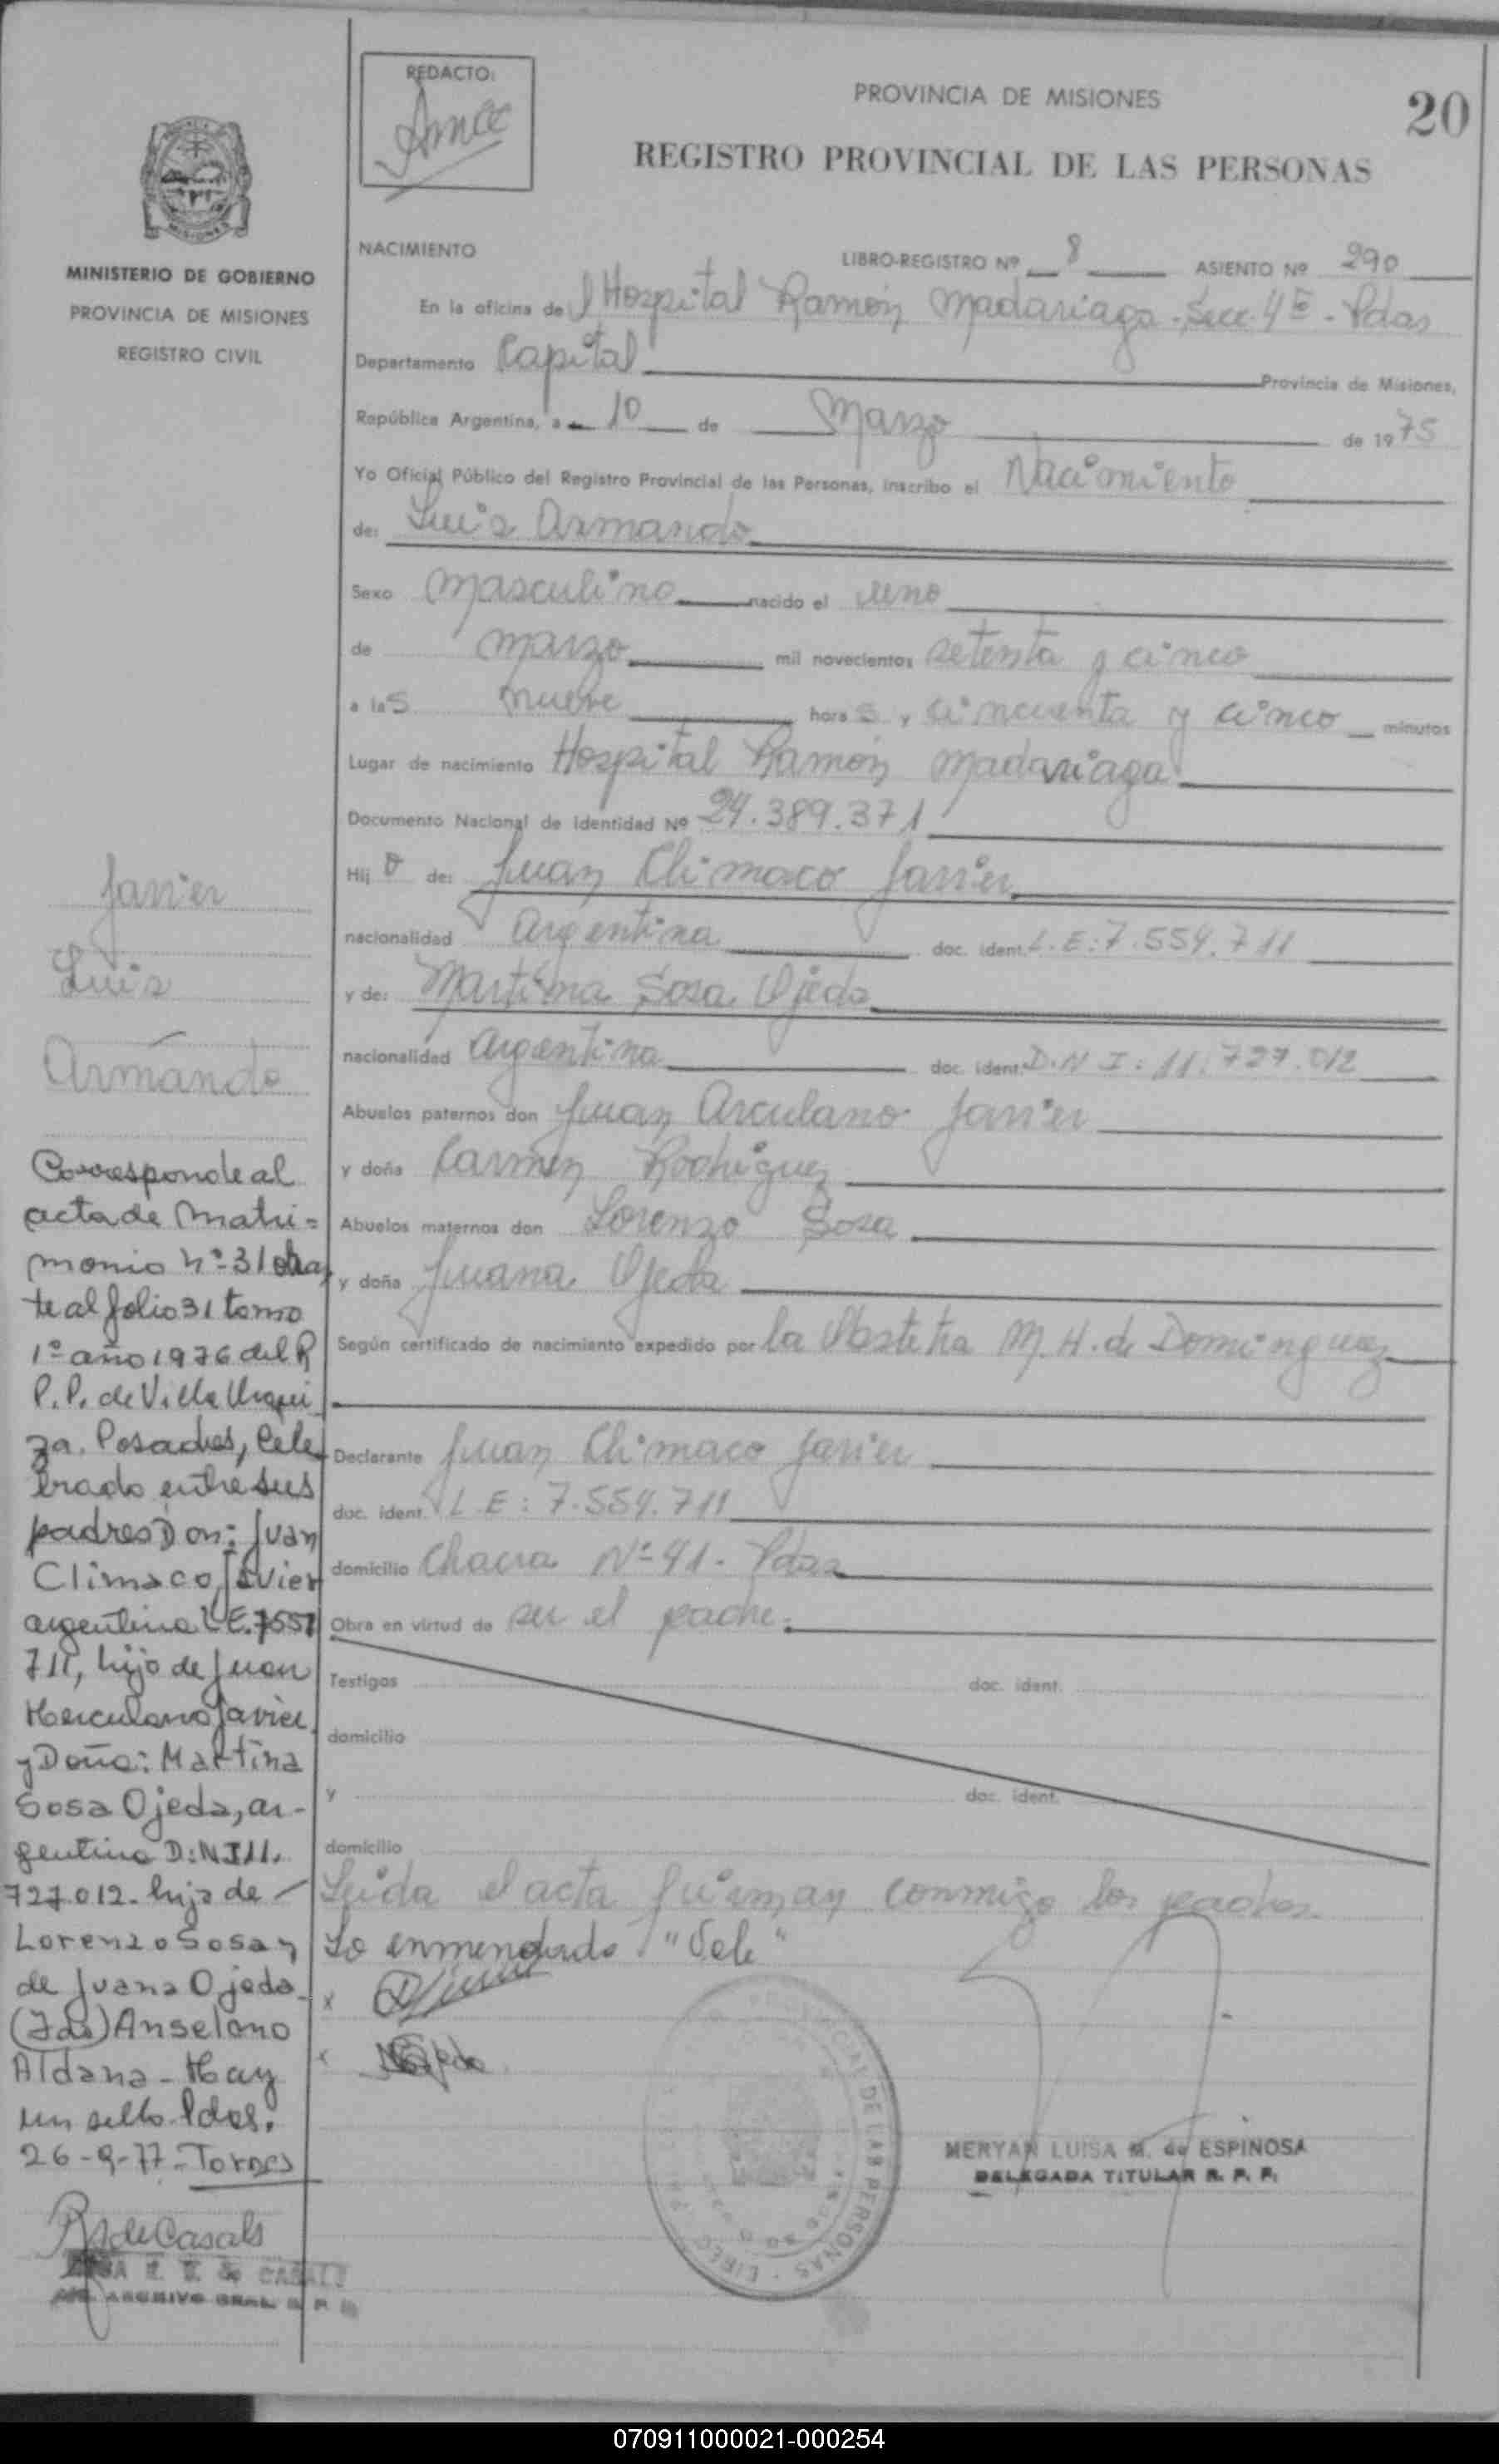 REDACTO:
PROVINCIA DE MISIONES
20
REGISTRO PROVINCIAL DE LAS PERSONAS
MINISTERIO DE GOBIERNO
PROVINCIA DE MISIONES
REGISTRO CIVIL
NACIMIENTO
LIBRO-REGISTRO Nº 8 ASIENTO Nº 290
En la oficina del Hospital Ramón Madariaga - Secc. 4ª - Pdas
Departamento Capital Provincia de Misiones,
República Argentina, a 10 de Marzo de 1975
Yo Oficial Público del Registro Provincial de las Personas, inscribo el Nacimiento
de: Luis Armando
Sexo masculino nacido el uno
de marzo mil novecientos setenta y cinco
a las nueve horas y cincuenta y cinco minutos
Lugar de nacimiento Hospital Ramón Madariaga
Documento Nacional de Identidad Nº 24.389.371
Hijo de: Juan Climaco Javier
nacionalidad argentina doc. ident. L.E: 7.554.711
y de: Martina Sosa Ojeda
nacionalidad argentina doc. ident. D.N.I: 11.727.012
Abuelos paternos don Juan Arculano Javier
y doña Carmen Rodriguez
Abuelos maternos don Lorenzo Sosa
y doña Juana Ojeda
Según certificado de nacimiento expedido por la Obstetra M.H. de Dominguez
Declarante Juan Climaco Javier
doc. ident. L.E: 7.554.711
domicilio Chacra Nº 41 - Pdas
Obra en virtud de ser el padre.
Testigos doc. ident.
domicilio
y doc. ident.
domicilio
Leida el acta firman conmigo los padres
Lo enmendado "Vale"
x
x
MERYAN LUISA M. de ESPINOSA
DELEGADA TITULAR R. P. P.
Javier
Luis
Armando
Corresponde al
acta de Matri=
monio Nº 31 obran
te al folio 31 tomo
1º año 1976 del R
P.P. de Villa Urqui
za. Posadas, Cele
brado entre sus
padres Don: Juan
Climaco Javier
argentino L.E. 7554
711, hijo de Juan
Herculano Javier
y Doña: Martina
Sosa Ojeda, ar-
gentina D:NI 11.
727.012- hija de
Lorenzo Sosa y
de Juana Ojeda.
(Fdo) Anselmo
Aldana - Hay
un sello. Pdas.
26-9-77- Torres
de Casals
ARCHIVO GRAL
070911000021-000254